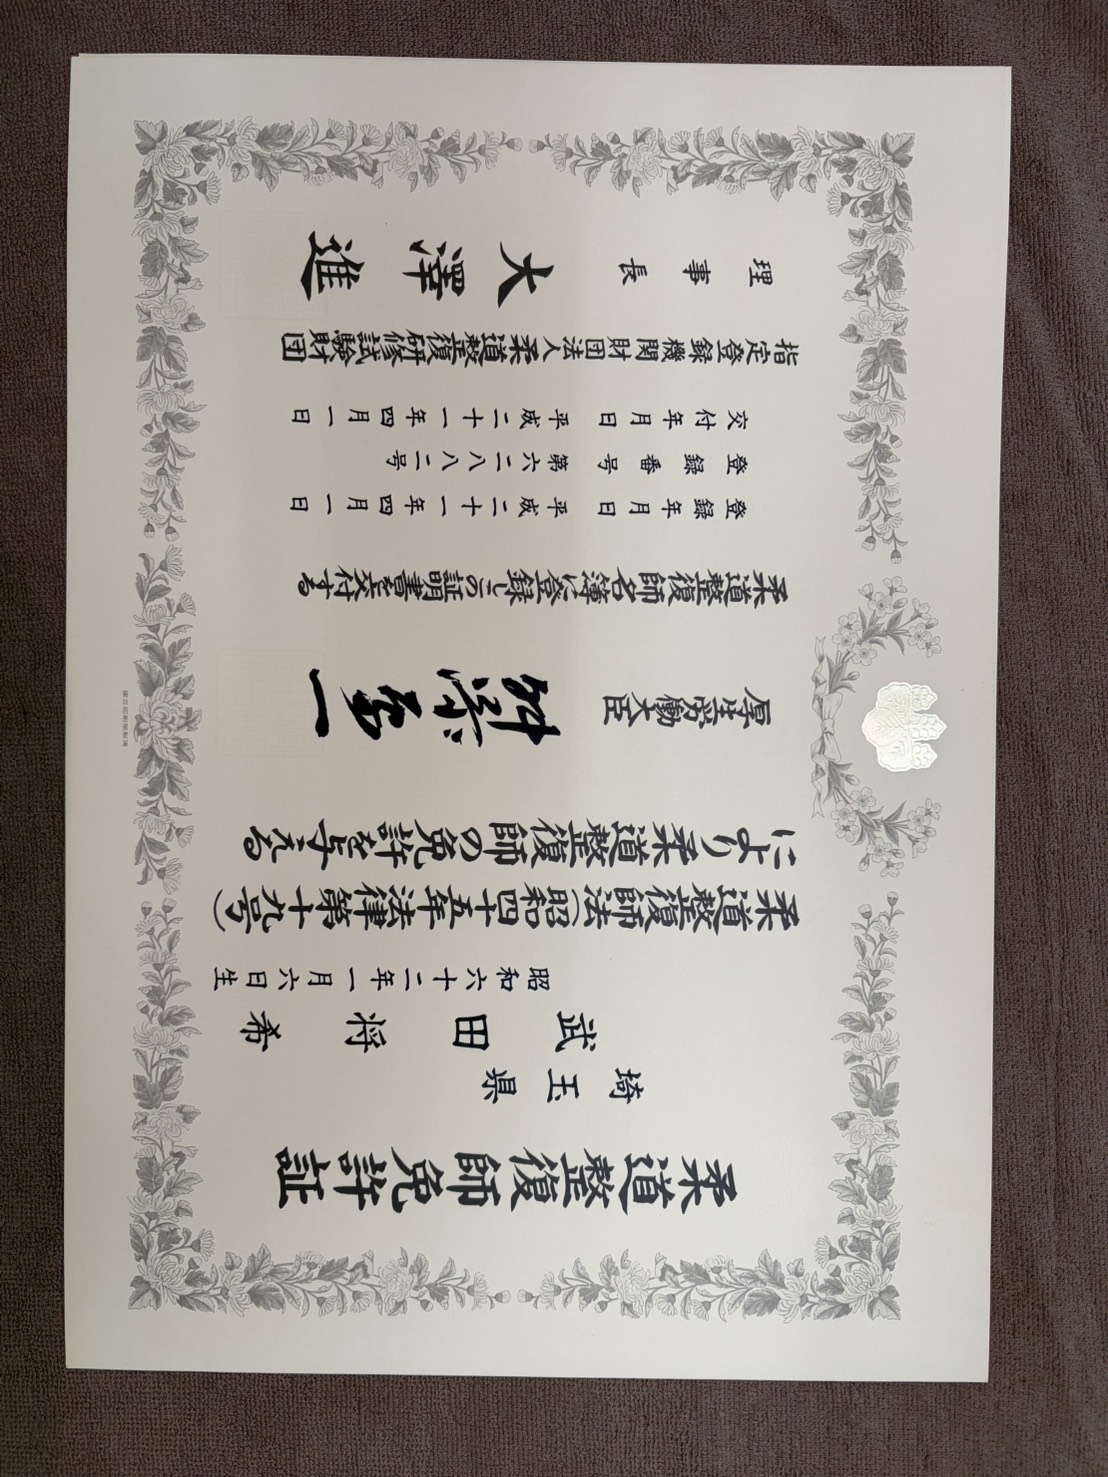 柔道整復師免許証
埼玉県
武田将希
昭和六十二年一月六日生
柔道整復師法(昭和四十五年法律第十九号)
により柔道整復師の免許を与える
厚生労働大臣 舛添要一
柔道整復師名簿に登録しこの証明書を交付する
登録年月日 平成二十一年四月一日
登録番号 第六二一八八二号
交付年月日 平成二十一年四月一日
指定登録機関財団法人柔道整復研修試験財団
理事長 大澤進